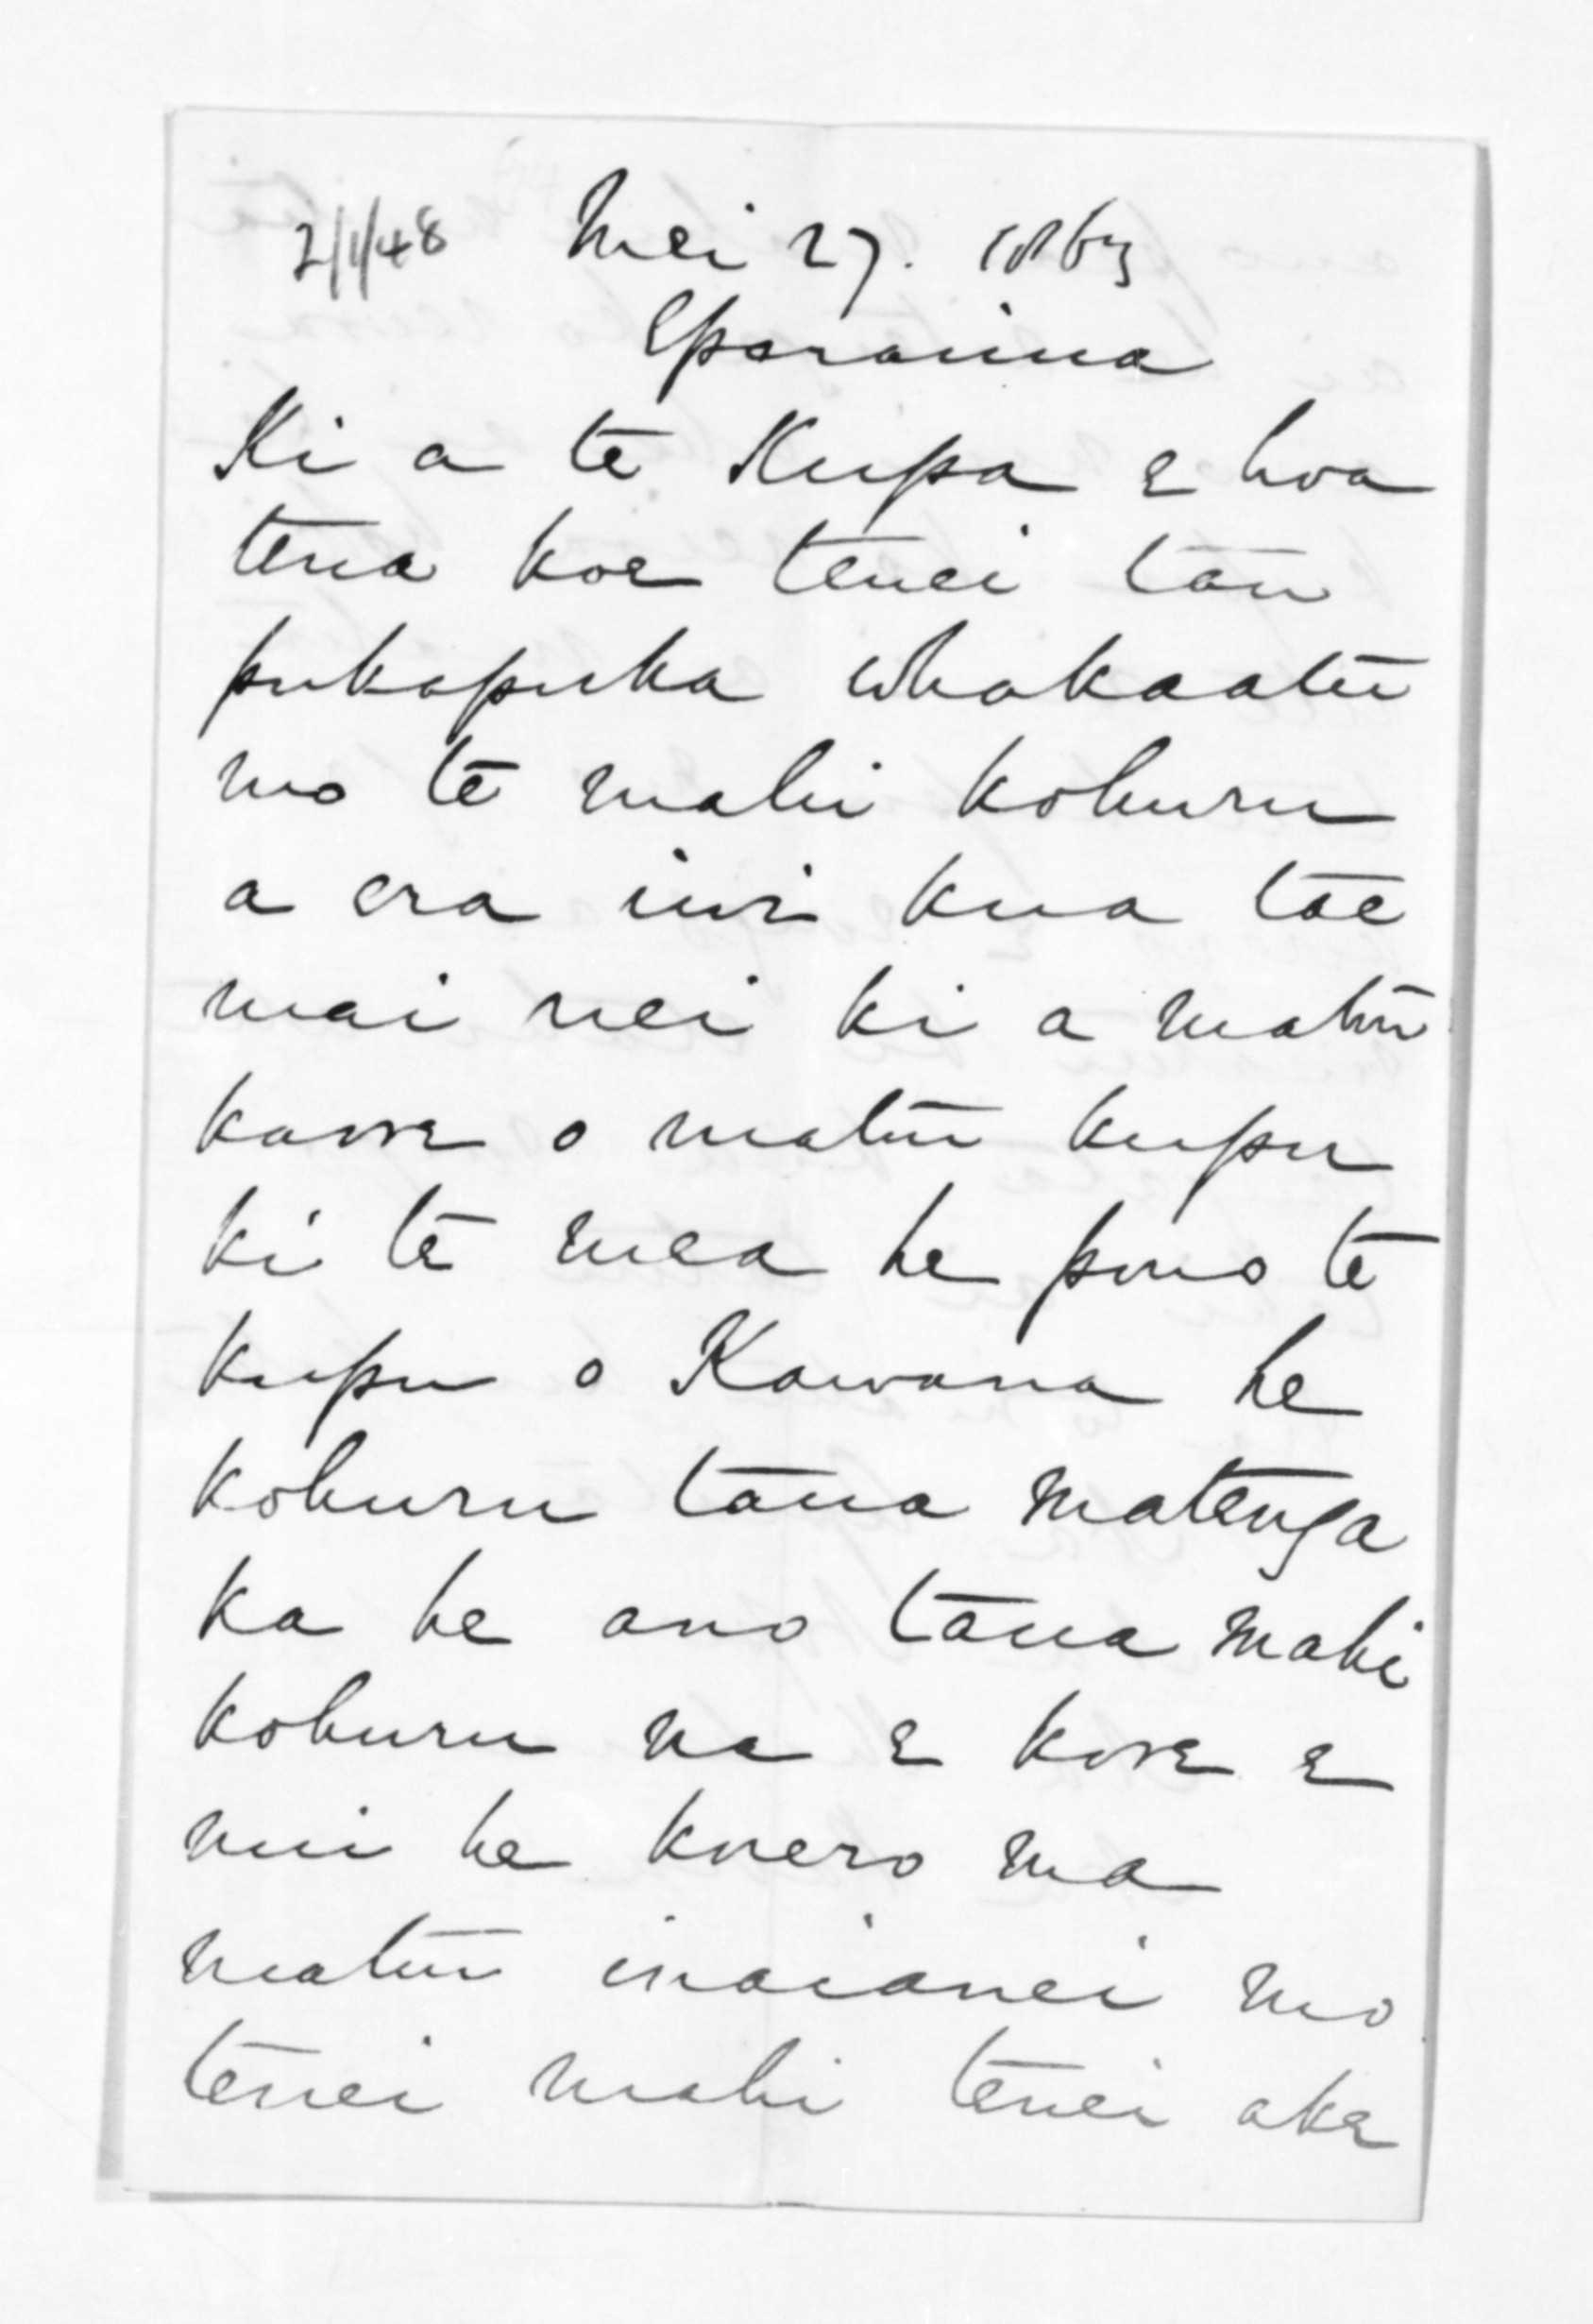 2/1/48 Mei 27. 1863
Eparaima
Ki a te Kupa e hoa
tena koe tenei tau
pukapuka whakaatu
mo te mahi kohuru
a era iwi kua tae
mai nei ki a matu
kaore o matu kupu
ki te mea he pono te
kupu o Kawana he
kohuru tana matenga
ka he ano tana mahi
kohuru na e kore e
nui he korero ma
matu inaianei mo
tenei mahi tenei ake